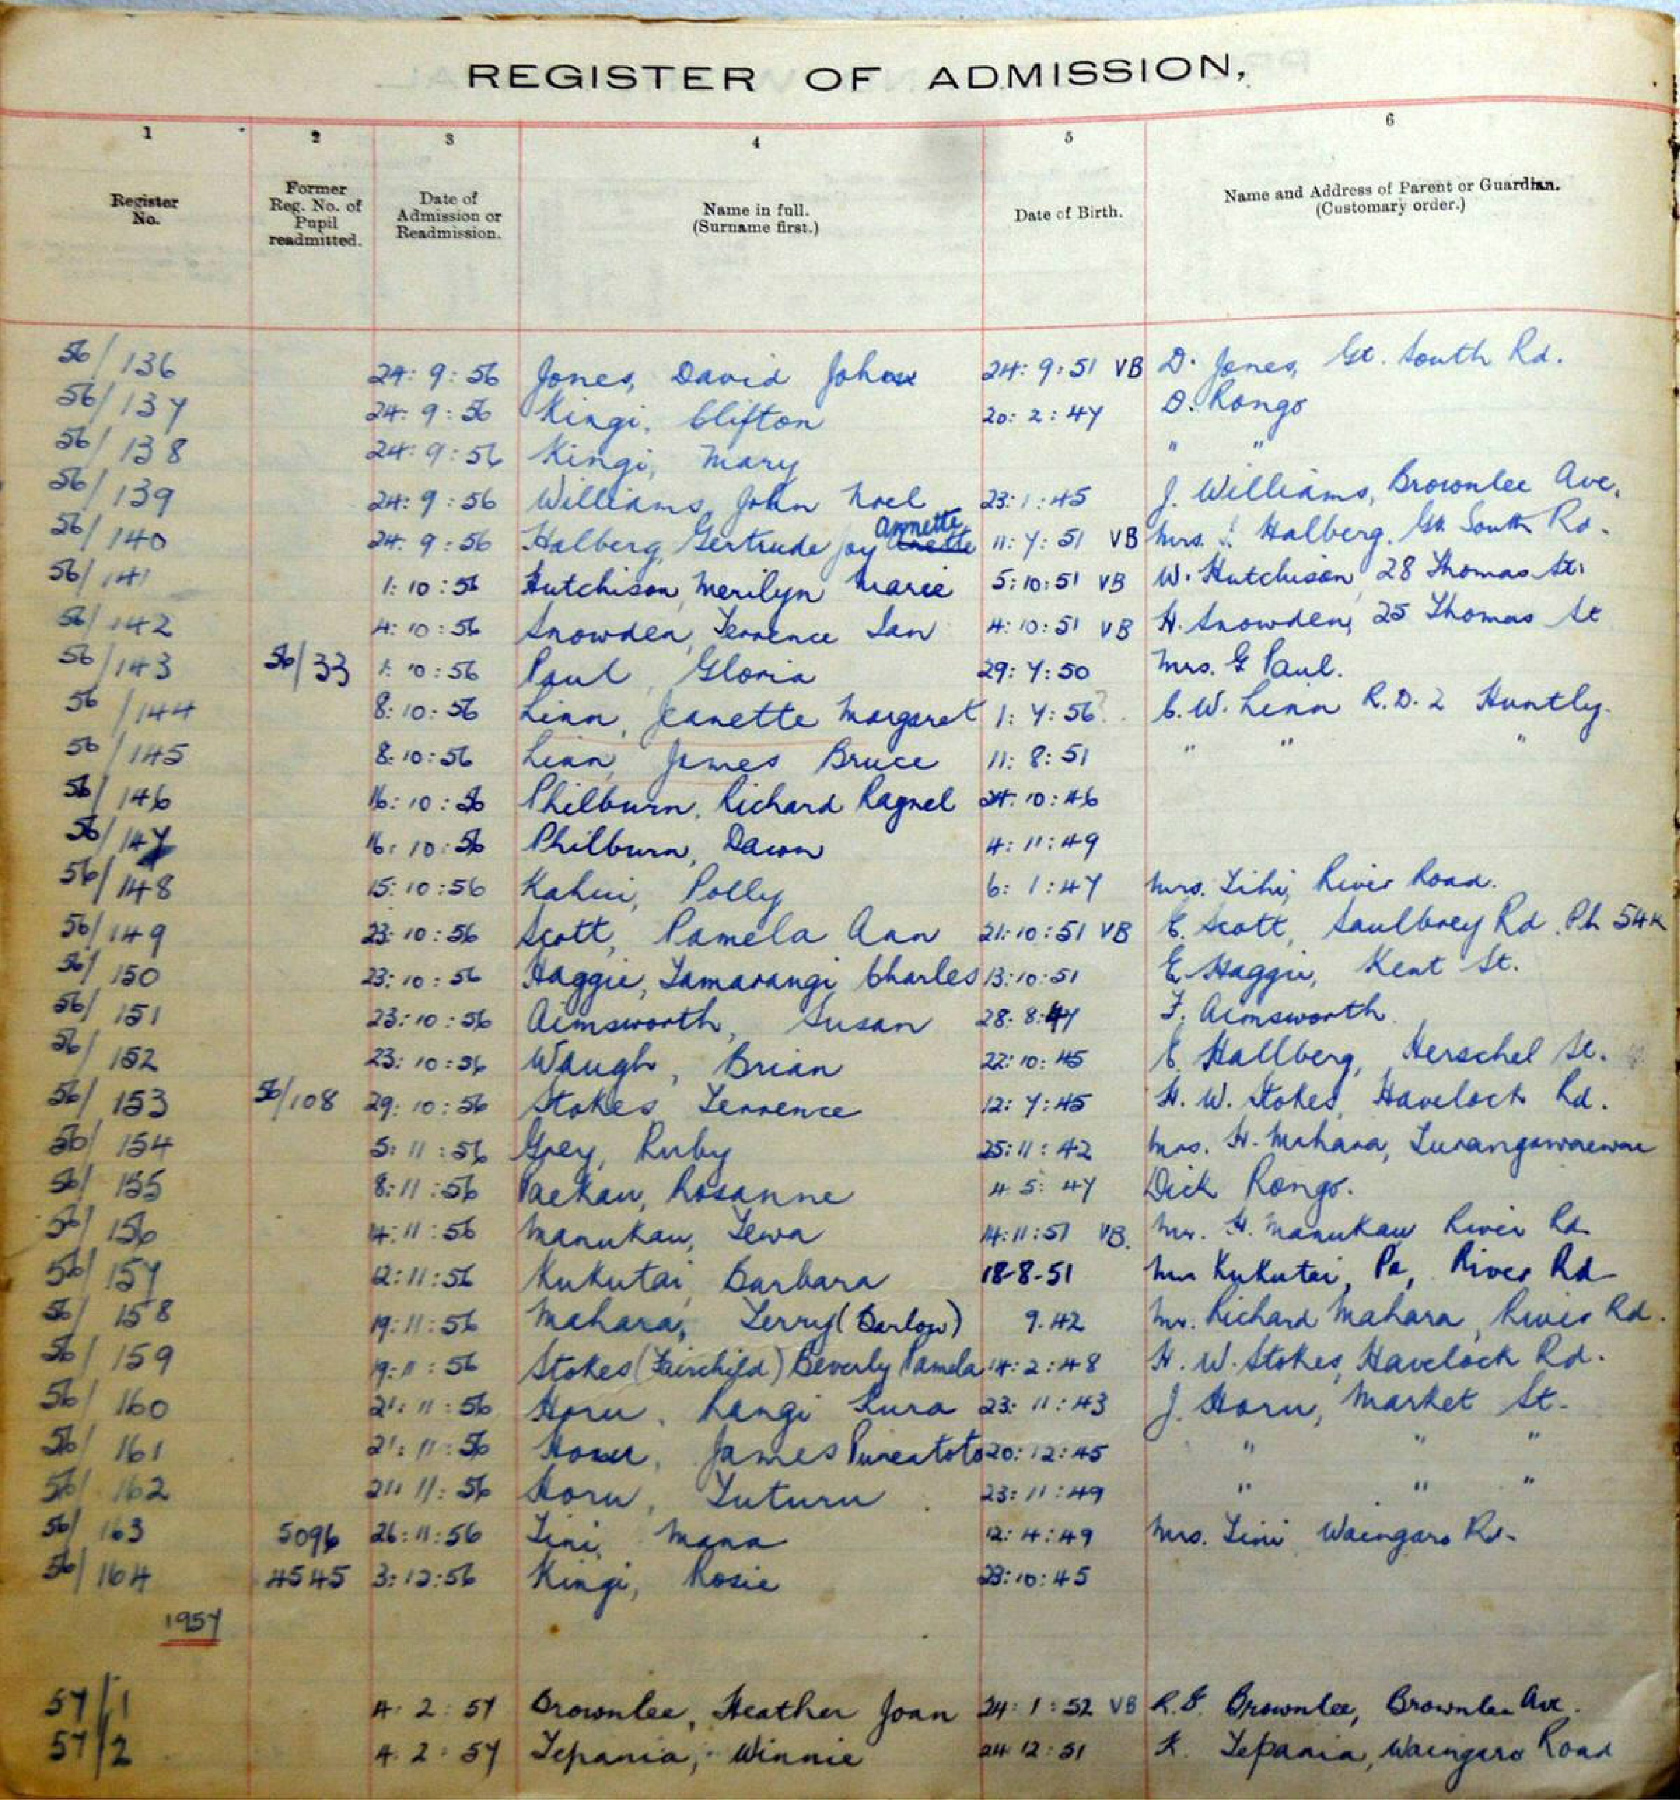 REGISTER OF ADMISSION,
1 2 3 4 5 6
Register No. Former Reg. No. of Pupil readmitted. Date of Admission or Readmission. Name in full. (Surname first.) Date of Birth. Name and Address of Parent or Guardian. (Customary order.)
56/136 24:9:56 Jones, David John 24:9:51 VB D. Jones, Gt. South Rd.
56/137 24:9:56 Kingi, Clifton 20:2:47 D. Rongo
56/138 24:9:56 Kingi, Mary " "
56/139 24:9:56 Williams, John Noel 23:1:45 J. Williams, Brownlee Ave.
56/140 24:9:56 Halberg, Gertrude Joy Annette 11:7:51 VB Mrs. Halberg. Gt. South Rd.
56/141 1:10:56 Hutchison, Merilyn Marie 5:10:51 VB W. Hutchison, 28 Thomas St.
56/142 4:10:56 Snowden, Terrence Ian 4:10:51 VB H. Snowden, 25 Thomas St
56/143 56/33 1:10:56 Paul, Gloria 29:7:50 Mrs. G Paul.
56/144 8:10:56 Linn, Jeanette Margaret 1:7:56? C. W. Linn R.D. 2 Huntly.
56/145 8:10:56 Linn, James Bruce 11:8:51 " " "
56/146 16:10:56 Philburn, Richard Ragnel 24:10:46
56/147 16:10:56 Philburn, Dawn 4:11:49
56/148 15:10:56 Kahui, Polly 6:1:47 Mrs. Tihi, River Road.
56/149 23:10:56 Scott, Pamela Ann 21:10:51 VB E. Scott, Saulbrey Rd. Ph 54K
56/150 23:10:56 Haggie, Tamarangi Charles 13:10:51 E. Haggie, Kent St.
56/151 23:10:56 Aimsworth, Susan 28:8:47 F. Aimsworth
56/152 23:10:56 Waugh, Brian 22:10:45 E. Hallberg, Herschel St.
56/153 56/108 29:10:56 Stokes, Terrence 12:7:45 H. W. Stokes, Havelock Rd.
56/154 5:11:56 Grey, Ruby 25:11:42 Mrs. H. Mahara, Turangawaewae
56/155 8:11:56 Paekau, Rosanne 4 5:47 Dick Rongo.
56/156 14:11:56 Manukau, Tewa 14:11:51 VB. Mr. H. Manukau River Rd
56/157 12:11:56 Kukutai, Barbara 18-8-51 Mrs Kukutai, Pa, River Rd
56/158 19:11:56 Mahara, Terry (Barlow) 9.42 Mr. Richard Mahara, River Rd.
56/159 19:11:56 Stokes (Fairchild) Beverly Pamela 14:2:48 H. W. Stokes, Havelock Rd.
56/160 21:11:56 Horu, Rangi Kura 23:11:43 J. Horu, Market St.
56/161 21:11:56 Horu, James Pureatoto 20:12:45 " " "
56/162 21:11:56 Horu, Tuturu 23:11:49 " " "
56/163 5096 26:11:56 Tini, Mana 12:4:49 Mrs. Tini Waingaro Rd.
56/164 4545 3:12:56 Kingi, Rosie 23:10:45
1957
57/1 4:2:57 Brownlee, Heather Joan 24:1:52 VB R.G. Brownlee, Brownlee Ave.
57/2 4:2:57 Tepania, Winnie 24 12:51 K. Tepania, Waingaro Road